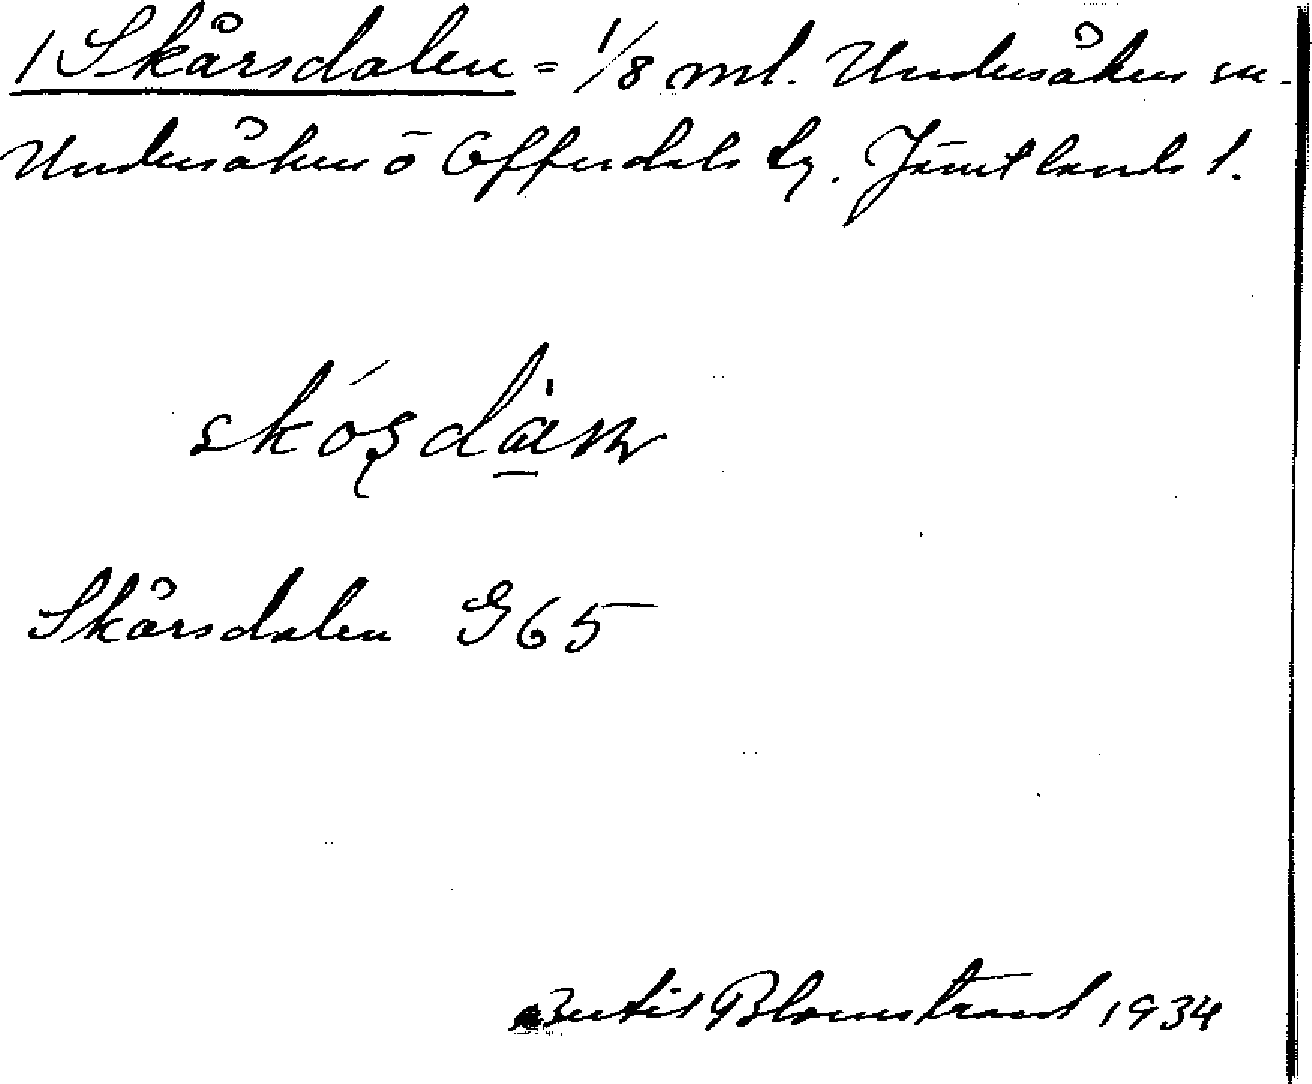 1 Skårsdalen = 1/8 mtl. Undersåkers sn.
Undersåkers o Offerdals tg. Jämtlands l.
Skårsdalen G65
Bertil Blomstrand 1934